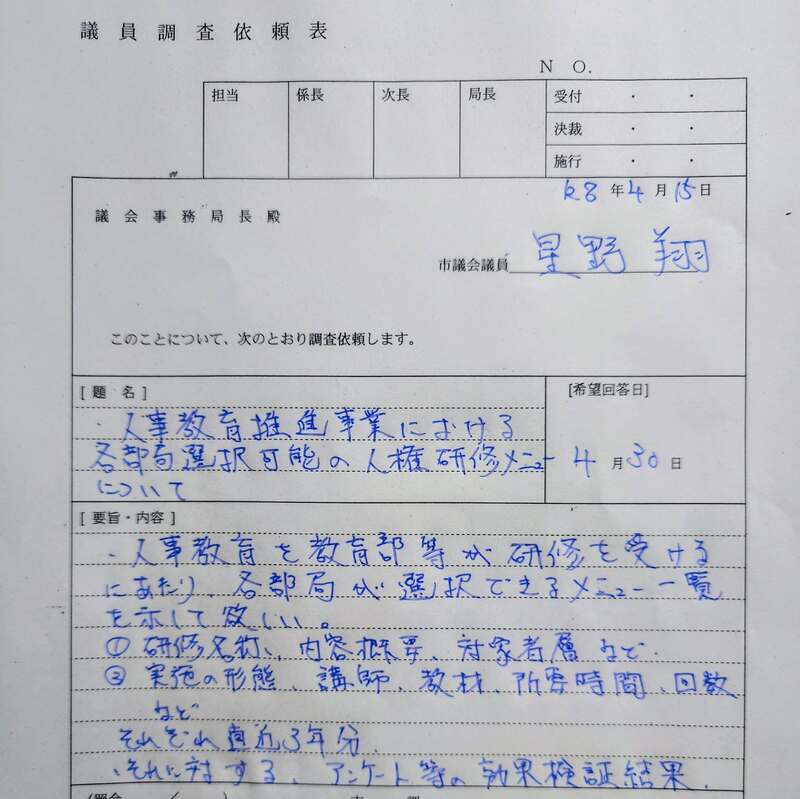 議員調査依頼表
NO.
担当 係長 次長 局長 受付 ・ ・
決裁 ・ ・
施行 ・ ・
R8年4月15日
議会事務局長殿
市議会議員 星野 翔
このことについて、次のとおり調査依頼します。
[題 名] [希望回答日]
・人事教育推進事業における
各部局選択可能の人権研修メニュー 4月30日
について
[要旨・内容]
・人事教育を教育部等が研修を受ける
にあたり、各部局が選択できるメニュー一覧
を示して欲しい。
① 研修名称、内容概要、対象者層など
② 実施の形態、講師、教材、所要時間、回数
など
それぞれ直近3年分
・それに対する、アンケート等の効果検証結果.